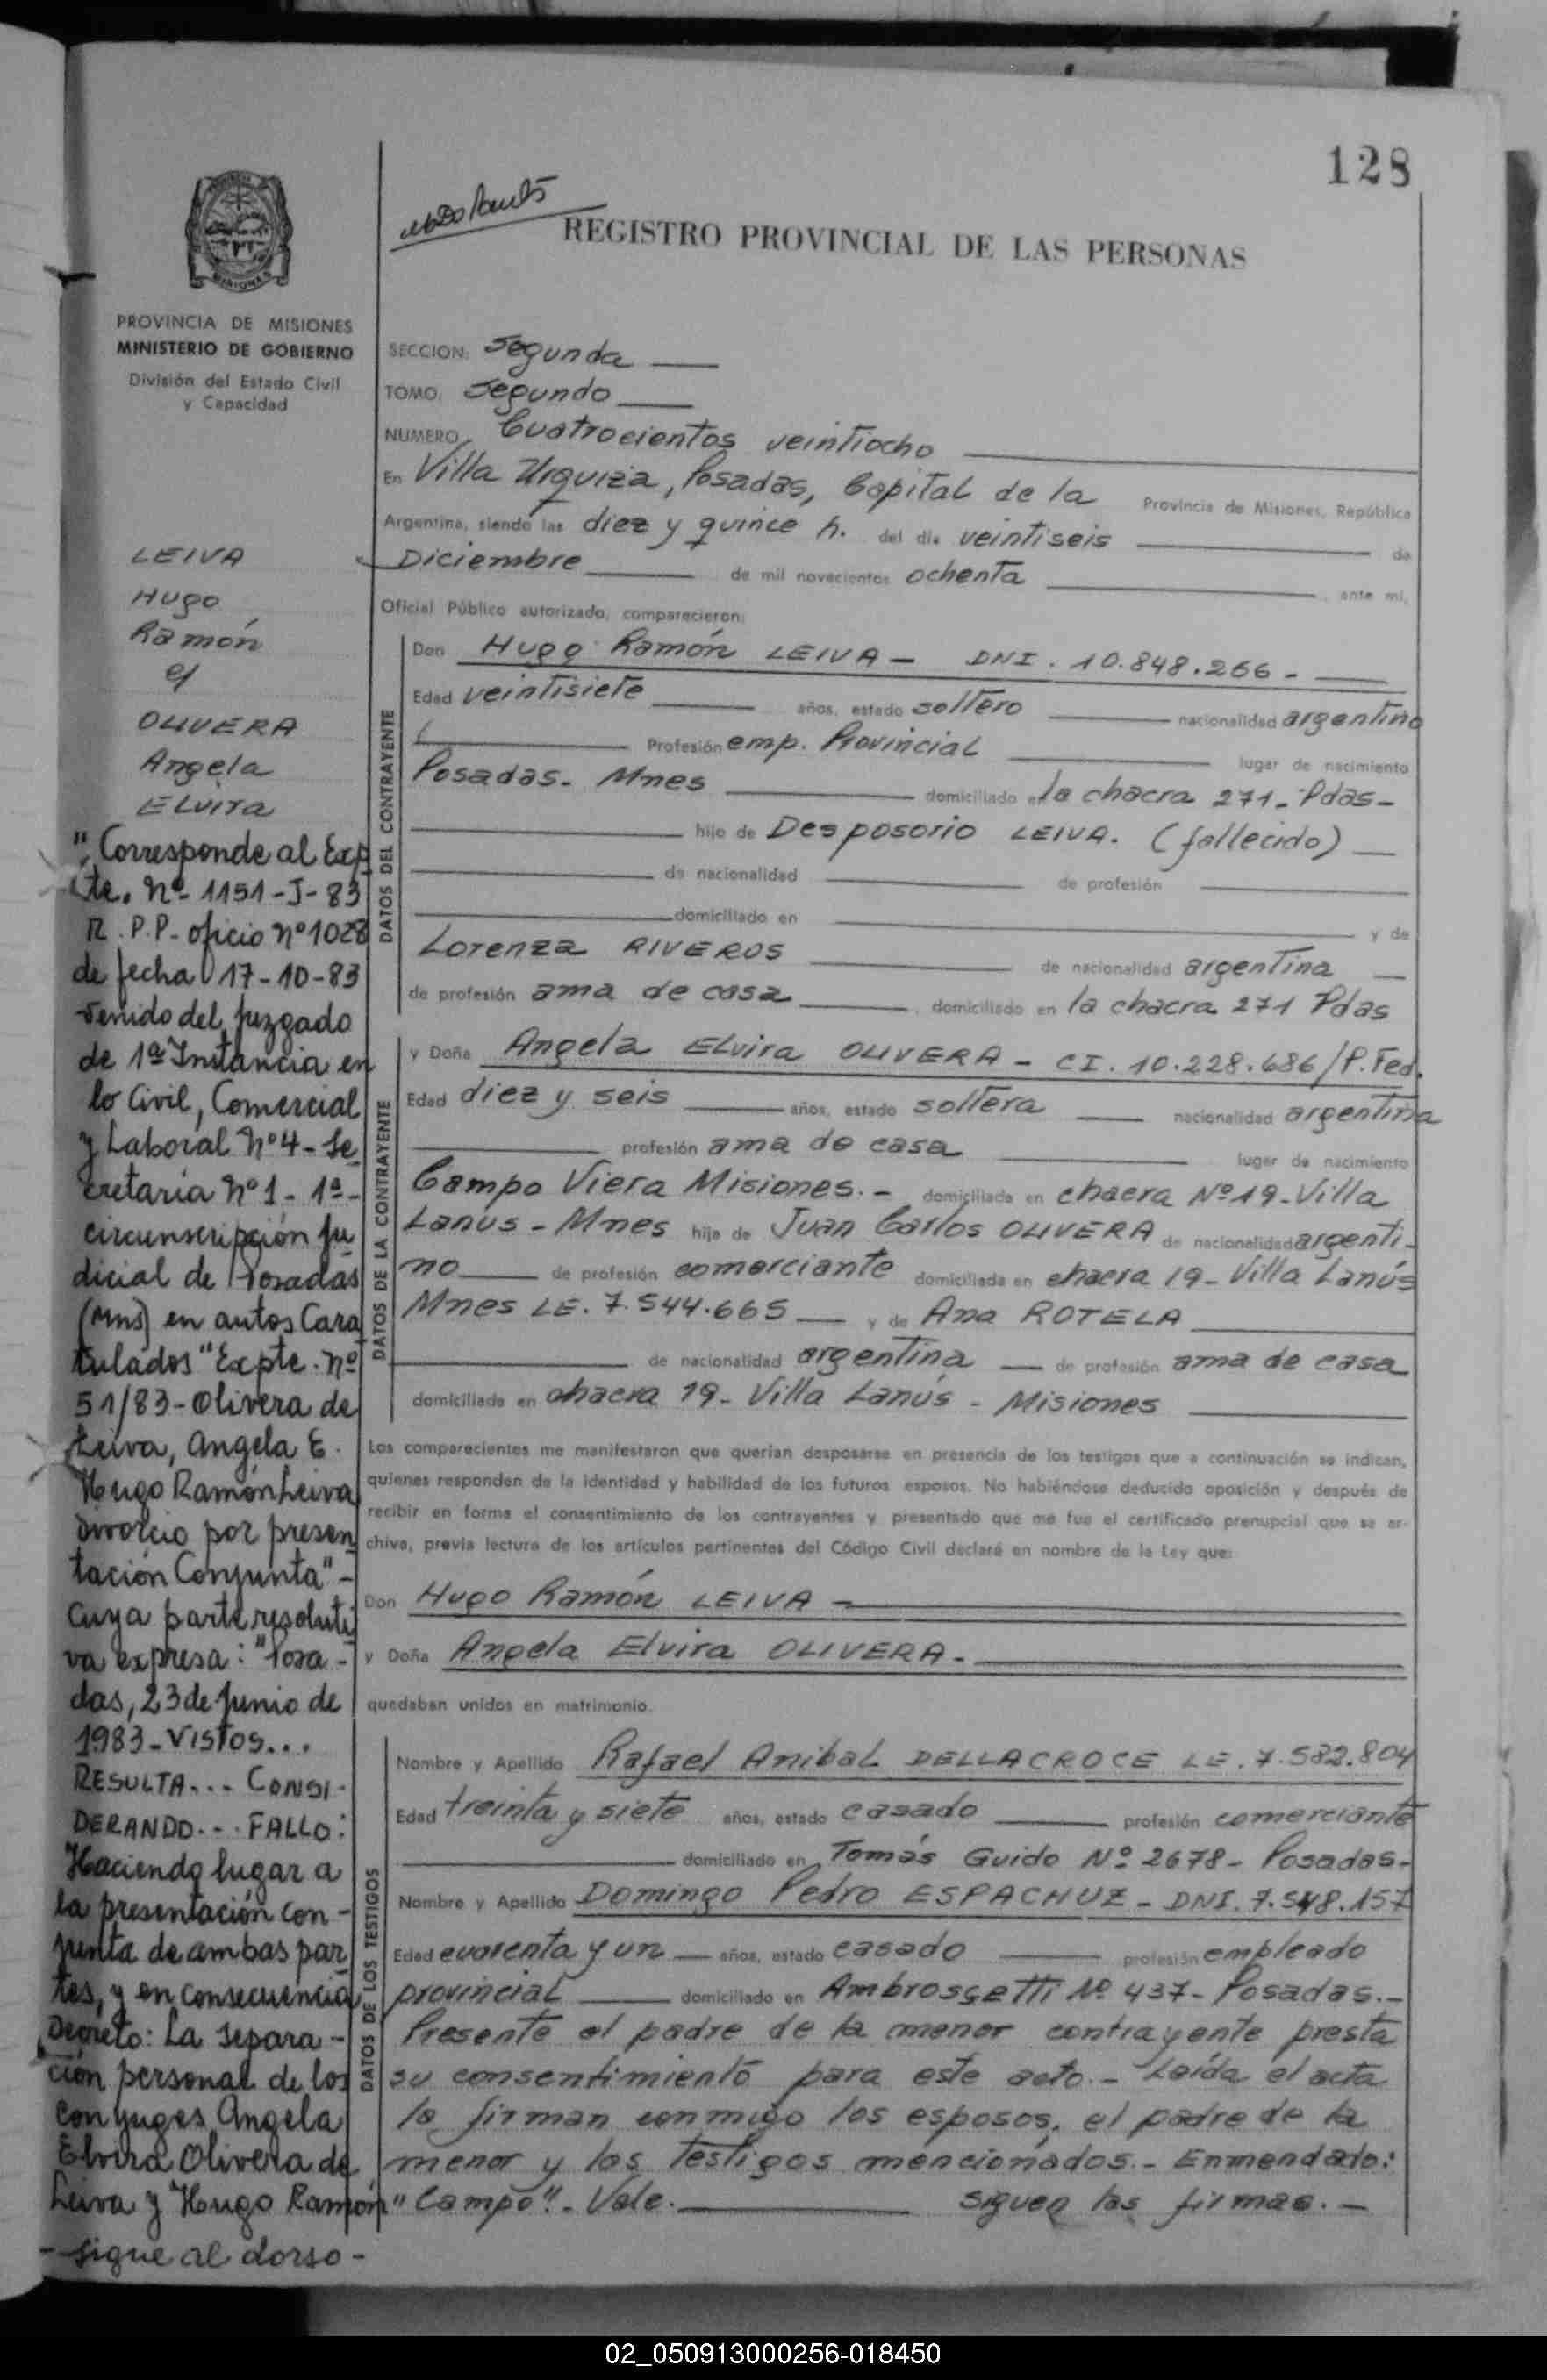 128
REGISTRO PROVINCIAL DE LAS PERSONAS
MISIONES
PROVINCIA DE MISIONES
MINISTERIO DE GOBIERNO
División del Estado Civil
y Capacidad
LEIVA
Hugo
Ramón
y
OLIVERA
Angela
ELvira
"Corresponde al Exp
te. Nº 1151-J-83
R.P.P- oficio nº 1028
de fecha 17-10-83
venido del Juzgado
de 1ª Instancia en
lo Civil, Comercial
y Laboral Nº 4 - Se
cretaria nº 1 - 1ª-
circunscripción Ju
dicial de Posadas
(Mns) en autos Cara
tulados "Expte. nº
51/83 - Olivera de
Leiva, Angela E.
Hugo Ramón Leiva
divorcio por presen
tación Conjunta"-
Cuya parte resoluti
va expresa: "Posa-
das, 23 de Junio de
1983 - VISTOS...
RESULTA... CONSI-
DERANDO... FALLO:
Haciendo lugar a
la presentación con-
junta de ambas par
tes, y en consecuencia
Decreto: La separa-
ción personal de los
conyuges Angela
Elvira Olivera de
Leiva y Hugo Ramón
- sigue al dorso -
SECCION: Segunda
TOMO: Segundo
NUMERO Cuatrocientos veintiocho
En Villa Urquiza, Posadas, Capital de la Provincia de Misiones, República
Argentina, siendo las diez y quince h. del día veintiseis de
Diciembre de mil novecientos ochenta ante mí,
Oficial Público autorizado, comparecieron:
DATOS DEL CONTRAYENTE
Don Hugo Ramón LEIVA - DNI. 10.848.266 -
Edad veintisiete años, estado soltero nacionalidad argentino
Profesión emp. Provincial lugar de nacimiento
Posadas - Mnes domiciliado en la chacra 271 - Pdas-
hijo de Desposorio LEIVA. (fallecido)
de nacionalidad de profesión
domiciliado en y de
Lorenza RIVEROS de nacionalidad argentina
de profesión ama de casa, domiciliado en la chacra 271 Pdas
DATOS DE LA CONTRAYENTE
y Doña Angela ELvira OLIVERA - CI. 10.228.686/P.Fed.
Edad diez y seis años, estado soltera nacionalidad argentina
profesión ama de casa lugar de nacimiento
Campo Viera Misiones.- domiciliada en chacra Nº 19 - Villa
Lanus - Mnes hija de Juan Carlos OLIVERA de nacionalidad argenti-
no de profesión comerciante domiciliada en chacra 19 - Villa Lanús
Mnes LE. 7.544.665 y de Ana ROTELA
de nacionalidad argentina de profesión ama de casa
domiciliada en chacra 19 - Villa Lanús - Misiones
Los comparecientes me manifestaron que querían desposarse en presencia de los testigos que a continuación se indican,
quienes responden de la identidad y habilidad de los futuros esposos. No habiéndose deducido oposición y después de
recibir en forma el consentimiento de los contrayentes y presentado que me fue el certificado prenupcial que se ar-
chiva, previa lectura de los artículos pertinentes del Código Civil declaré en nombre de la Ley que:
Don Hugo Ramón LEIVA -
y Doña Angela Elvira OLIVERA -
quedaban unidos en matrimonio.
DATOS DE LOS TESTIGOS
Nombre y Apellido Rafael Anibal DELLACROCE LE. 7.582.804
Edad treinta y siete años, estado casado profesión comerciante
domiciliado en Tomás Guido Nº 2678 - Posadas-
Nombre y Apellido Domingo Pedro ESPACHUZ - DNI. 7.548.157
Edad cuarenta y un años, estado casado profesión empleado
provincial domiciliado en Ambrossetti Nº 437 - Posadas.-
Presente el padre de la menor contrayente presta
su consentimiento para este acto.- Leída el acta
la firman conmigo los esposos, el padre de la
menor y los testigos mencionados.- Enmendado:
"Campo". Vale. siguen las firmas.-
02_050913000256-018450